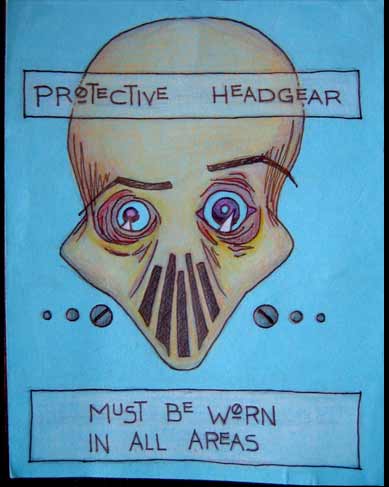 PROTECTIVE HEADGEAR
MUST BE WORN
IN ALL AREAS